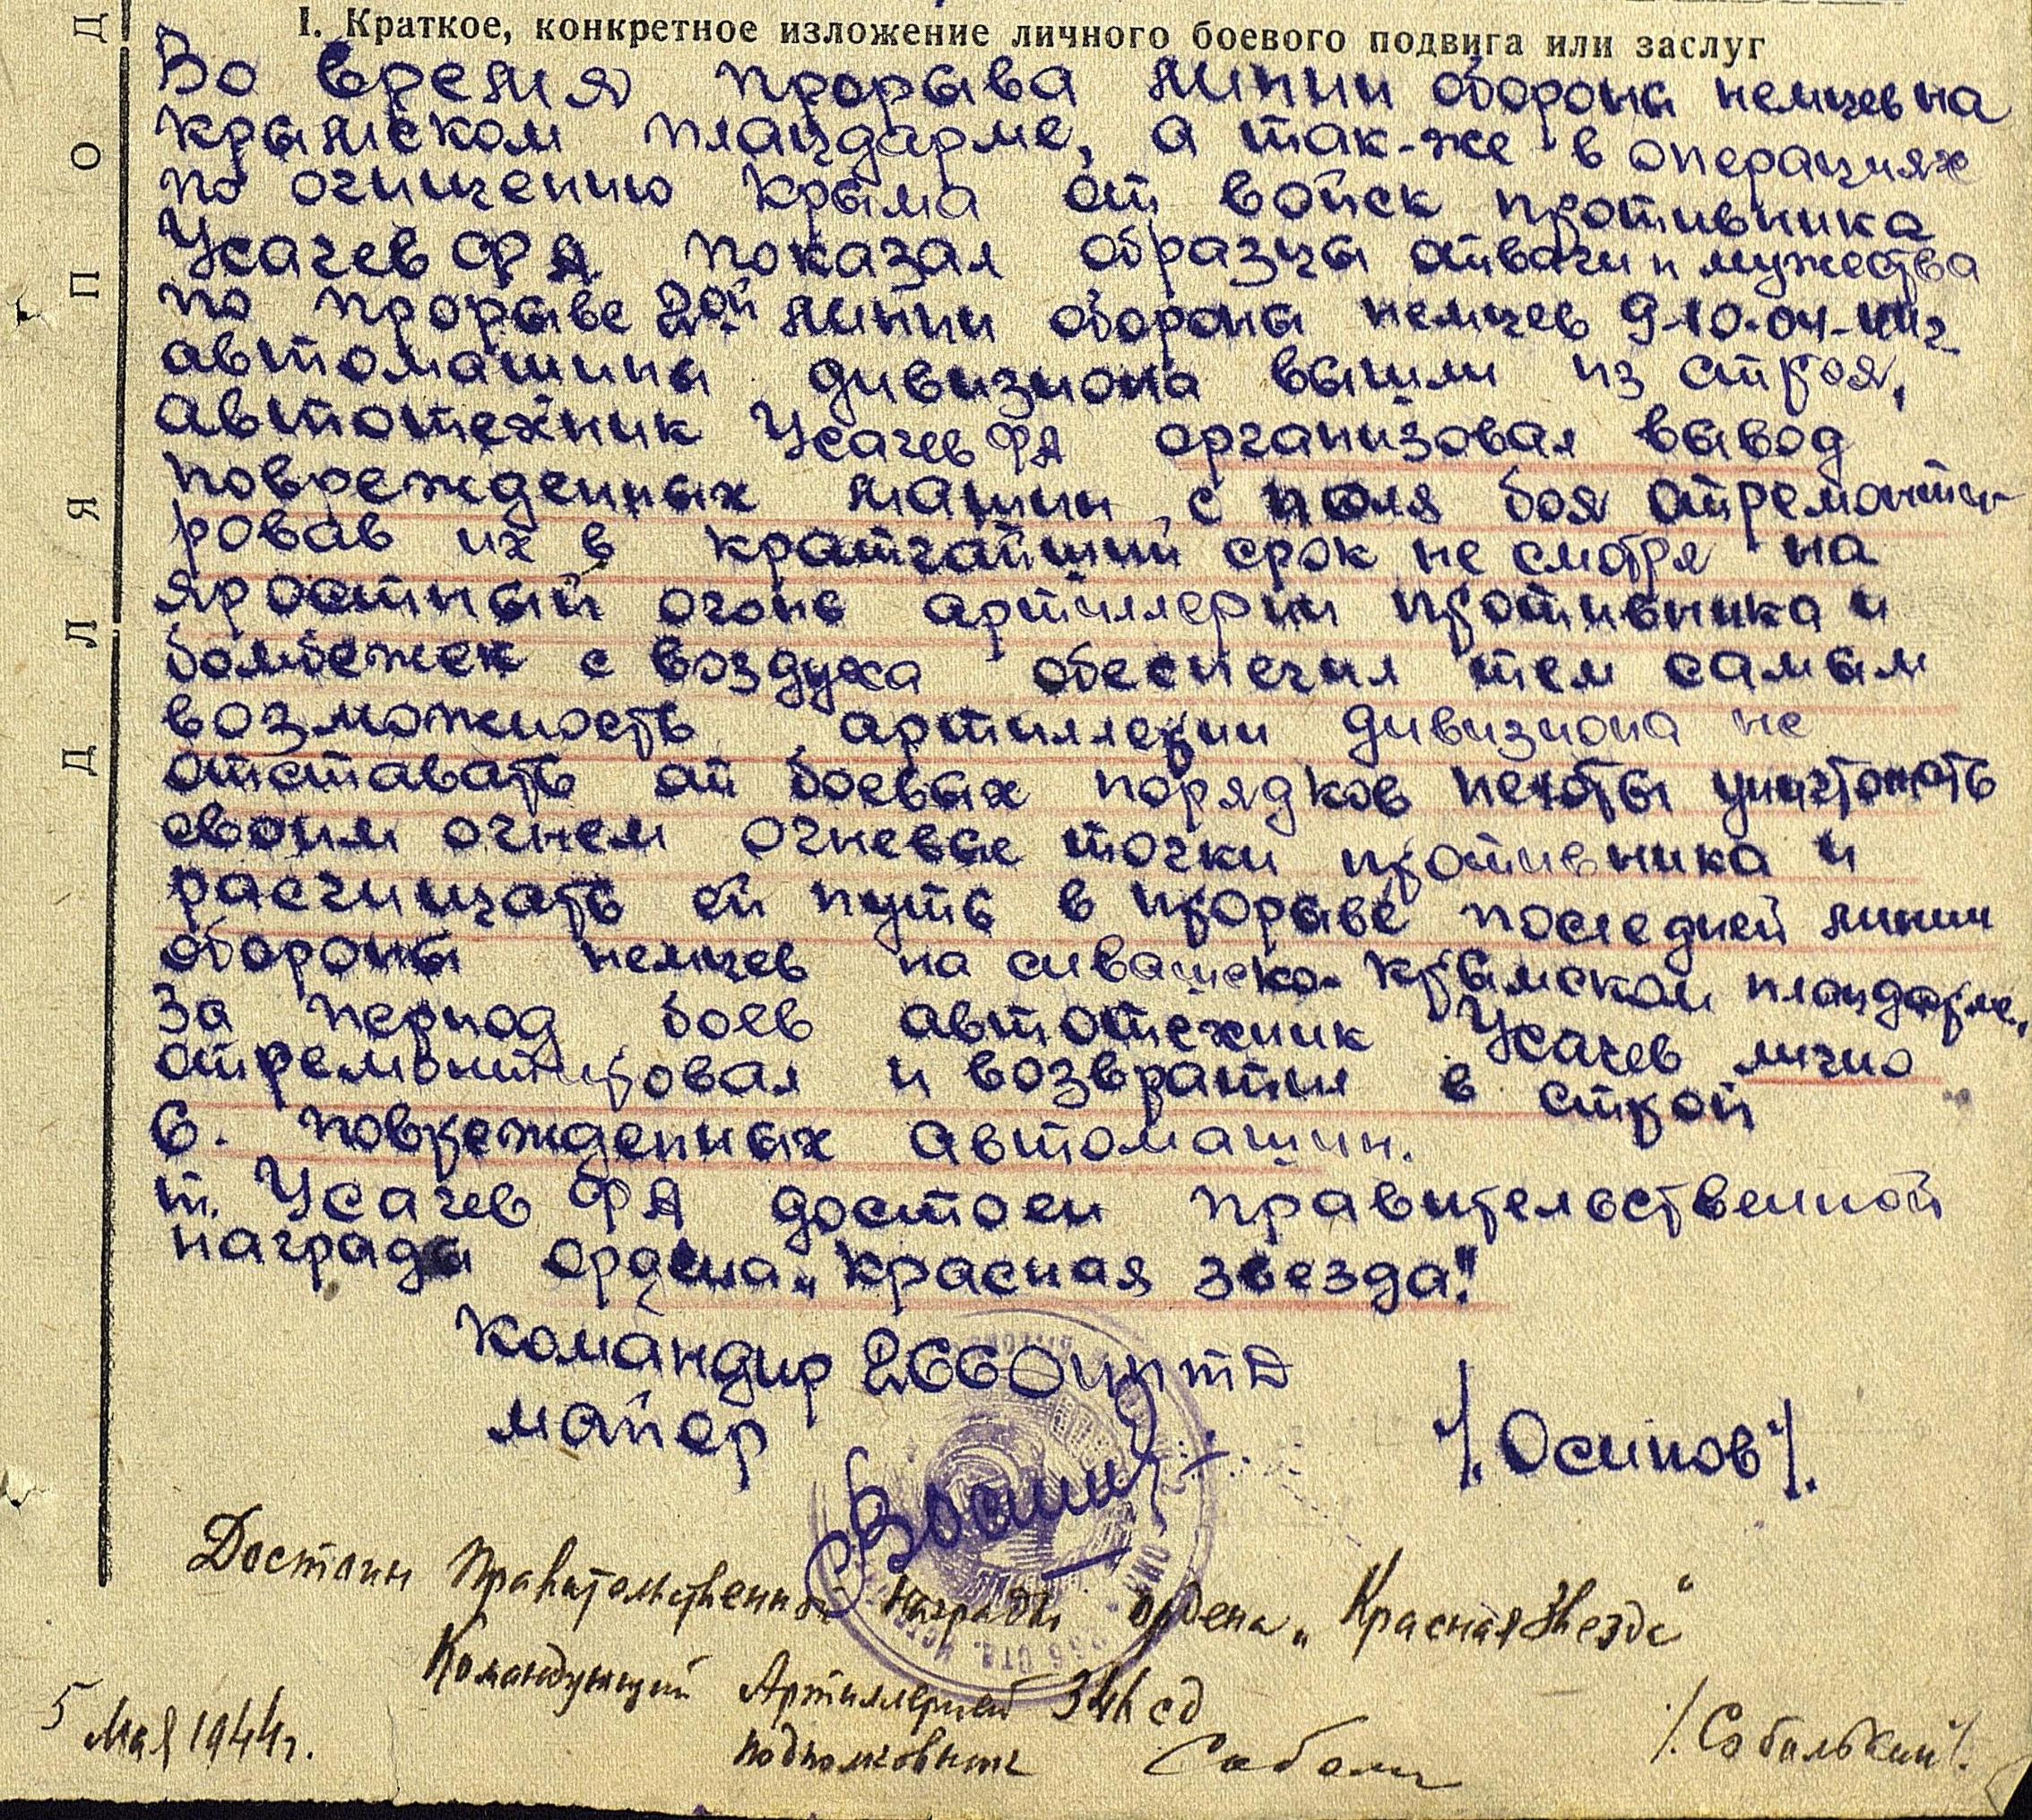 I. Краткое, конкретное изложение личного боевого подвига или заслуг
Во время прорыва линии обороны немцев на
крымском плацдарме, а так-же в операциях
по очищению крыма от войск противника
Усачев ФА показал образцы отваги и мужества
по прорыве 2ой линии обороны немцев 9-10-04-44г.
автомашины дивизиона вышли из строя,
автотехник Усачев ФА организовал вывод
поврежденных машин с поля боя отремонти-
ровав их в кратчайший срок не смотря на
яростный огонь артиллерии противника и
бомбежек с воздуха обеспечил тем самым
возможность артиллерии дивизиона не
отставать от боевых порядков пехоты уничтожать
своим огнем огневые точки противника и
расчищать ей путь в прорыве последней линии
обороны немцев на сивашско-крымском плацдарме.
За период боев автотехник Усачев лично
отремонтировал и возвратил в строй
6. поврежденных автомашин.
т. Усачев ФА достоен правительственной
награды ордена „Красная звезда!"
командир 266 Оиптд
майор /.Осипов/.
Достоин Правительственной Награды Ордена „Красная Звезда"
Командующий Артиллерией 346 сд
подполковник /.Собольский/.
5 Мая 1944г.
ДЛЯ ПОД